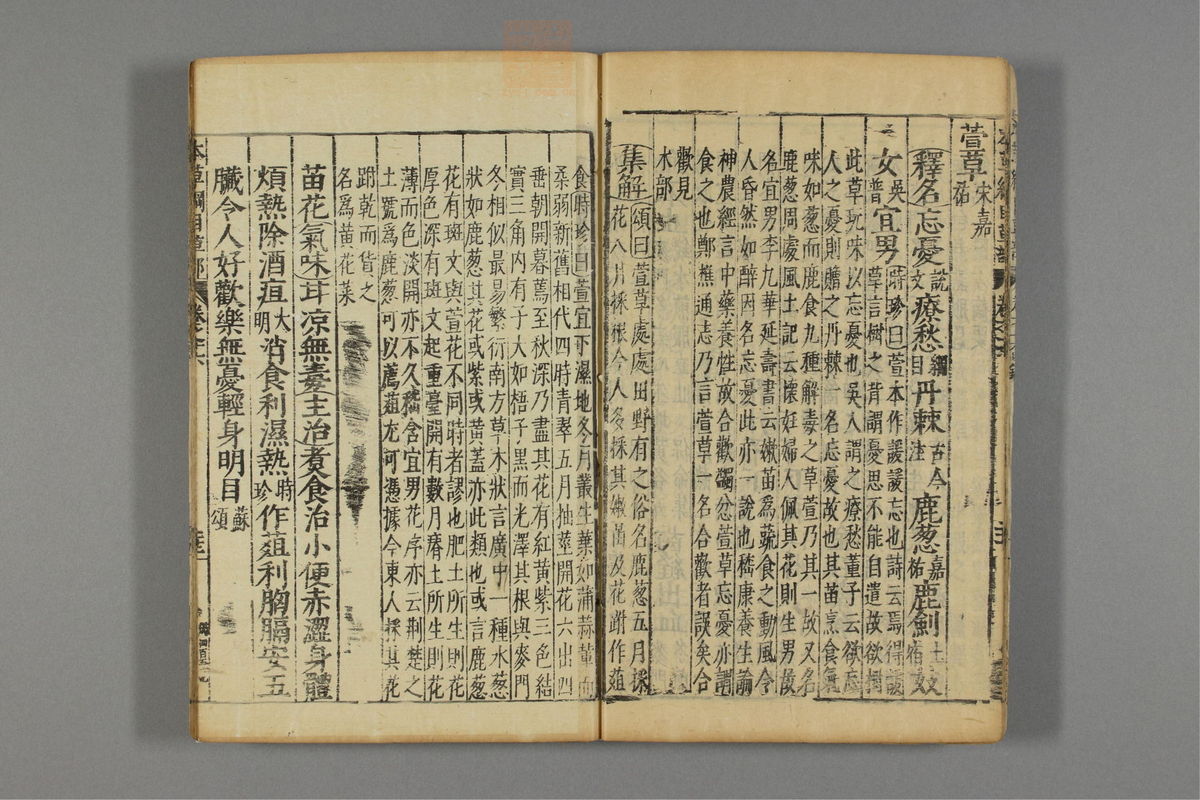 萱草宋嘉祐
釋名忘憂說文療愁綱目丹棘古今注鹿葱嘉祐鹿劍土宿妓
女吳普宜男時珍曰萱本作諼諼忘也詩云焉得諼草言樹之背謂憂思不能自遣故欲樹
此草玩味以忘憂也吳人謂之療愁董子云欲忘
人之憂則贈之丹棘一名忘憂故也其苗烹食氣
味如葱而鹿食九種解毒之草萱乃其一故又名
鹿葱周處風土記云懷妊婦人佩其花則生男故
名宜男李九華延壽書云嫩苗爲蔬食之動風令
人昏然如醉因名忘憂此亦一說也嵇康養生論
神農經言中藥養性故合歡蠲忿萱草忘憂亦謂
食之也鄭樵通志乃言萱草一名合歡者誤矣合
歡見
木部
集解頌曰萱草處處田野有之俗名鹿葱五月採
花八月採根今人多採其嫩苗及花跗作葅
食時珍曰萱宜下濕地冬月叢生葉如蒲蒜輩而
柔弱新舊相代四時青翠五月抽莖開花六出四
垂朝開暮蔫至秋深乃盡其花有紅黃紫三色結
實三角內有子大如梧子黑而光澤其根與麥門
冬相似最易繁衍南方草木狀言廣中一種水葱
狀如鹿葱其花或紫或黃蓋亦此類也或言鹿葱
花有斑文與萱花不同時者謬也肥土所生則花
厚色深有斑文起重臺開有數月瘠土所生則花
薄而色淡開亦不久嵇含宜男花序亦云荆楚之
土號爲鹿葱可以薦葅尤可憑據今東人採其花
跗乾而貨之
名爲黃花菜
苗花氣味甘凉無毒主治煑食治小便赤澀身體
煩熱除酒疸大明消食利濕熱時珍作葅利胸膈安五
臟令人好歡樂無憂輕身明目蘇頌